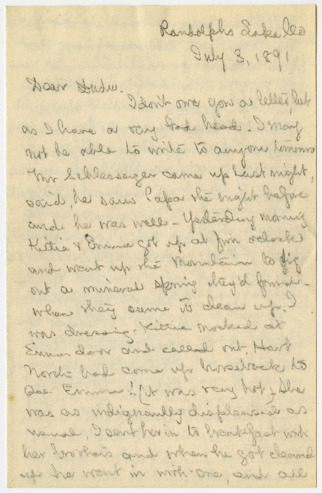 Randolphs Lake
July 3, 1891
Dear
I don't owe you a letter, but
as I have a very bad head. I may
not be able to write to anyone tomorrow
Mr Schlessinger came up last night,
said he saw Papa the night before
and he was well - Yesterday morning
Kittie & Emma got up at five o'clock
and went up the mountain to fix
out a mineral spring they'd found -
when they came to clean up. I
was dressing. Kittie knocked at
door and called out, Hart
North had come up horseback to
see Emma! (it was very hot) She
was as indignantly displeased as
usual, I sent her in to breakfast with
her brothers and when he got cleaned
up he went in with me, and all